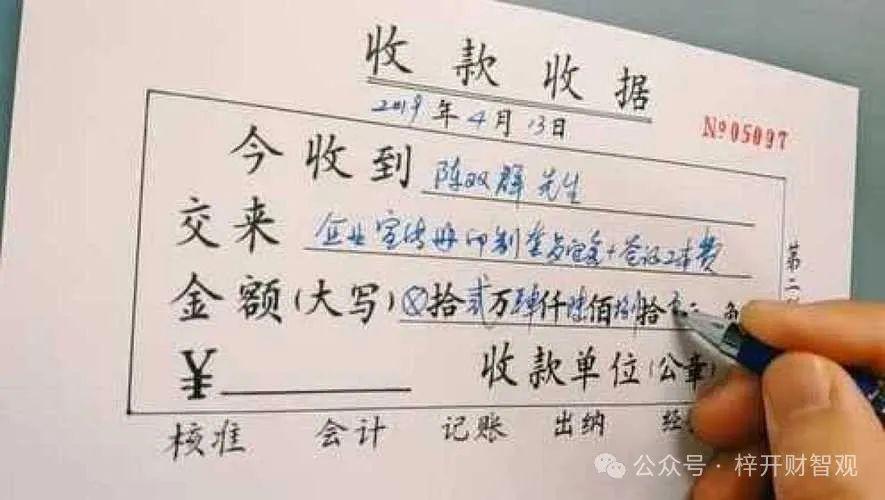 收款收据
2019年4月13日
№05097
今收到 陈双群 先生
交来 企业宣传册印刷 费
金额(大写) ⊗拾贰万肆仟陆佰捌拾
¥ 收款单位(公章)
核准 会计 记账 出纳 经
第二
公众号·梓开财智观